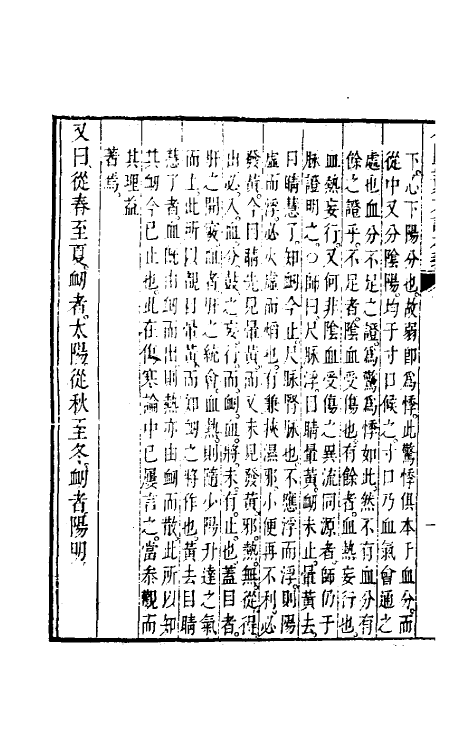 下。心下陽分也。故弱即為悸。此驚悸俱本于血分。而
從中又分陰陽。均于寸口候之。寸口乃血氣會通之
處也。血分不足之證。為驚為悸如此。然不有血分有
餘之證乎。不足者。陰血受傷也。有餘者。血熱妄行也。
血熱妄行。又何非陰血受傷之異流同源者。師仍于
脉證明之。師曰尺脉浮。目睛暈黃。衂未止。暈黃去。
目睛慧了。知衂今止。尺脉腎脉也。不應浮而浮。則陽
虛而浮。必火虛而熖也。有兼挾濕邪。小便再不利。必
發黃。今目睛先見暈黃。而又未見發黃。邪熱無從得
由必入血分鼓之妄行。而衂血將未有止也。蓋目者。
肝之開竅。血者。肝之統會。血熱則隨少陽升達之氣
而上。此所以覩目暈黃。而知衂之將作也。黃去目睛
慧了者。血既由衂而出。則熱亦由衂而散。此所以知
其衂今已止也。此在傷寒論中已屢言之。當叅觀而
其理益
著焉。
又曰。從春至夏衂者。太陽。從秋至冬衂者。陽明。